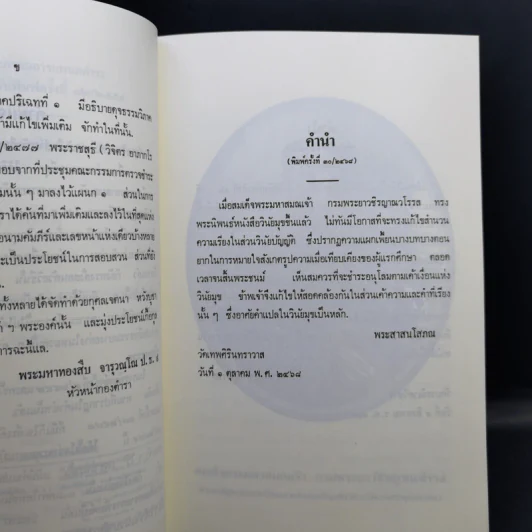 ข
คปริเฉทที่ ๑ มีอธิบายดุจธรรมวิภาค
ามีแก้ไขเพิ่มเติม จักทำในที่นั้น.
/๒๔๘๗ พระราชสุธี (วิจิตร อาภากโร
อบจากที่ประชุมคณะกรรมการตรวจชำระ
มนั้น ๆ มาลงไว้แผนก ๑ ส่วนในการ
ราได้ค้นที่มาเพิ่มเติมและลงไว้ในที่สุดแห่ง
อนามคัมภีร์และเลขหน้าแห่งเดียวบ้างหลาย
ะเป็นประโยชน์ในการสอบสวน ส่วนที่ยัง
ทั้งหลายได้จัดทำด้วยกุศลเจตนา หวังบูชา
ดำ ๆ พระองค์นั้น และมุ่งประโยชน์เกื้อกูล
การฉะนี้แล.
พระมหาทองสืบ จารุวณฺโณ ป. ธ.
หัวหน้ากองตำรา
คำนำ
(พิมพ์ครั้งที่ ๑๐/๒๔๖๘)
เมื่อสมเด็จพระมหาสมณเจ้า กรมพระยาวชิรญาณวโรรส ทรง
พระนิพนธ์หนังสือวินัยมุขขึ้นแล้ว ไม่ทันมีโอกาสที่จะทรงแก้ไขสำนวน
ความเรียงในส่วนวินัยบัญญัติ ซึ่งปรากฏความแผกเพี้ยนบางบทบางตอน
ยากในการหมายใจสังเกตรูปความเมื่อเทียบเคียงของผู้แรกศึกษา ตลอด
เวลาจนสิ้นพระชนม์ เห็นสมควรที่จะชำระอนุโลมตามเค้าเงื่อนแห่ง
วินัยมุข ข้าพเจ้าจึงแก้ไขให้สอดคล้องกันในส่วนเค้าความและคำที่เรียง
นั้น ๆ ซึ่งอาศัยคำแปลในวินัยมุขเป็นหลัก.
พระสาสนโสภณ
วัดเทพศิรินทราวาส
วันที่ ๑ ตุลาคม พ. ศ. ๒๔๖๘